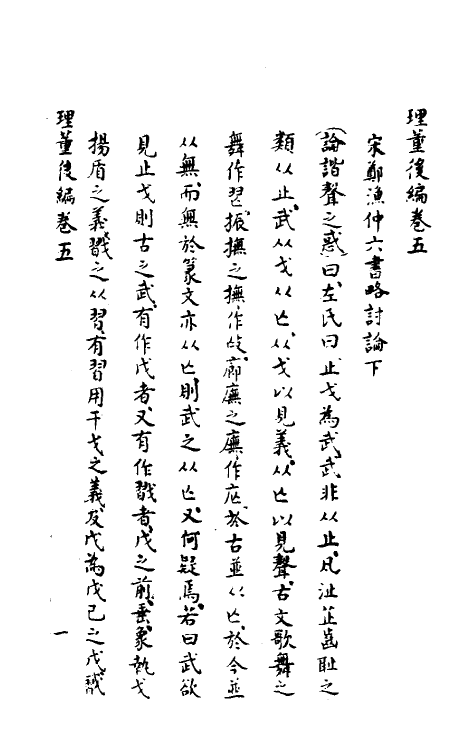 理董後編卷五
宋鄭漁仲六書略討論下
論諧聲之惑曰左氏曰止戈為武武非从止凡沚芷齒耻之
類从止武从戈从亡从戈以見義从亡以見聲古文歌舞之
舞作翌振撫之撫作𢻬廊廡之廡作㡆於古並从亡於今並
从無而無於篆文亦从亡則武之从亡又何疑焉若曰武欲
見止戈則古之武有作戊者又有作戩者戊之前垂象執戈
揚盾之義戩之从習有習用干戈之義及戊為戊己之戊
理董後編卷五
一